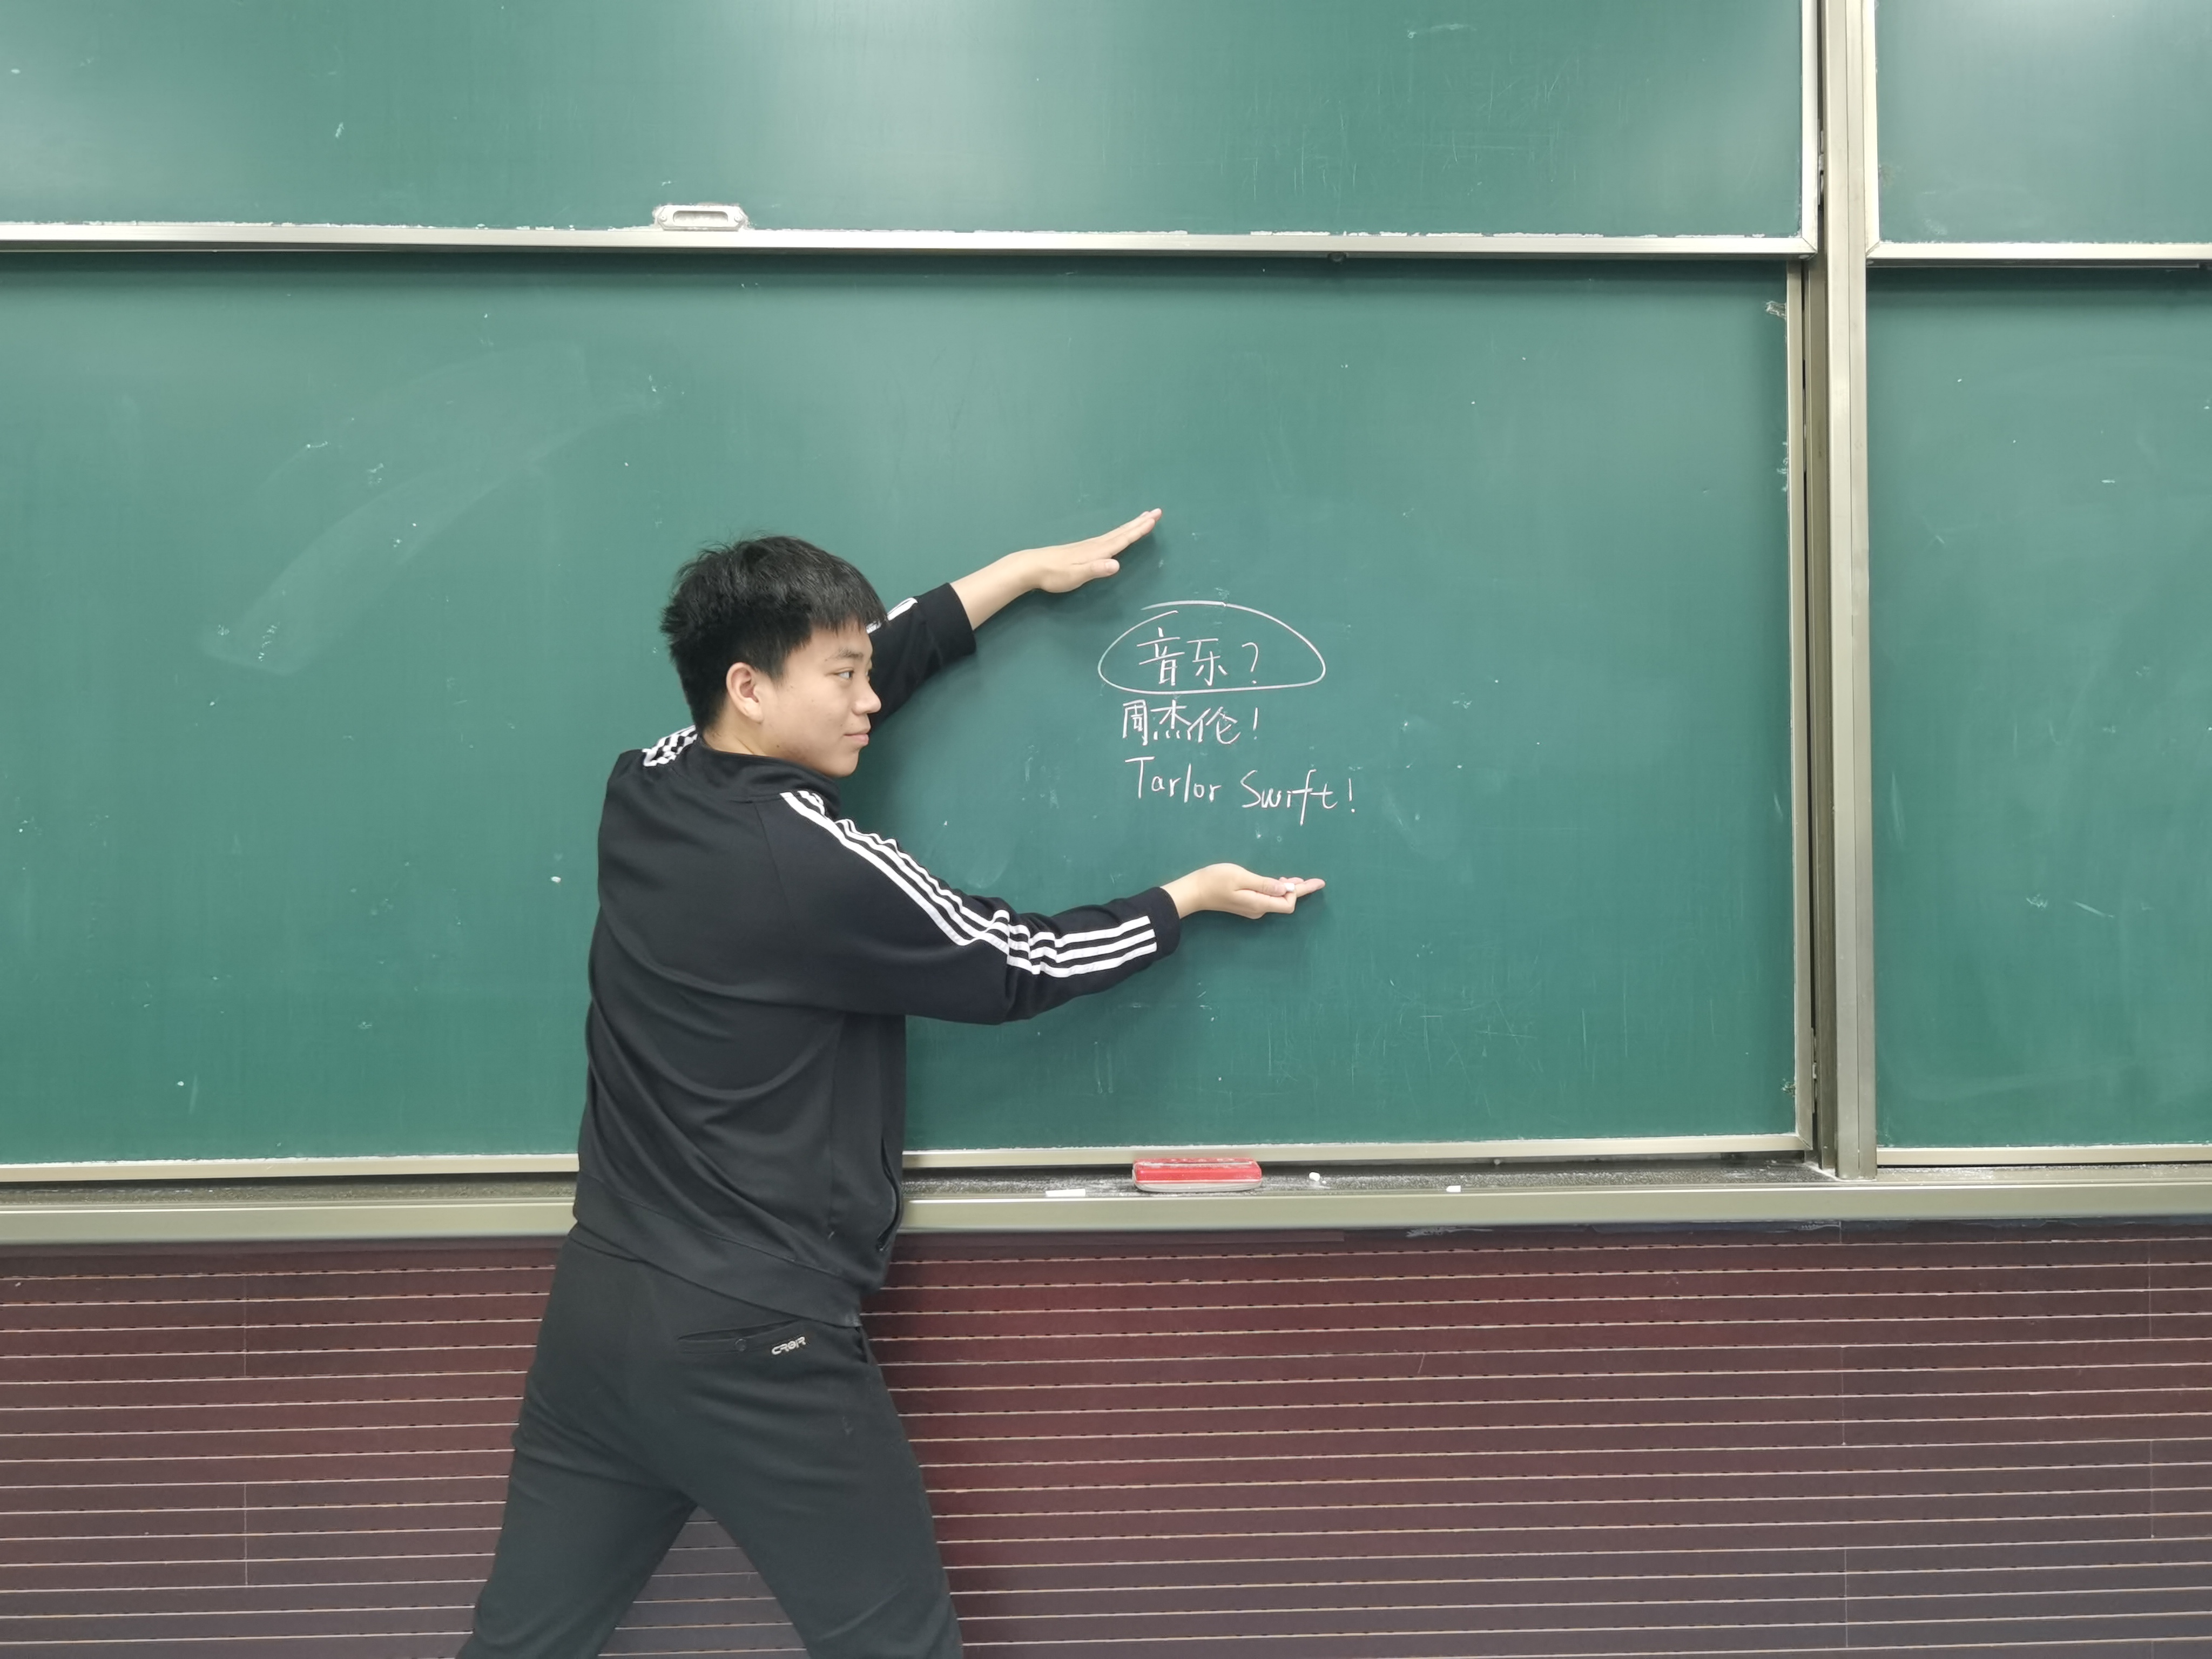 音乐?
周杰伦!
Tarlor Swift!
CROIR